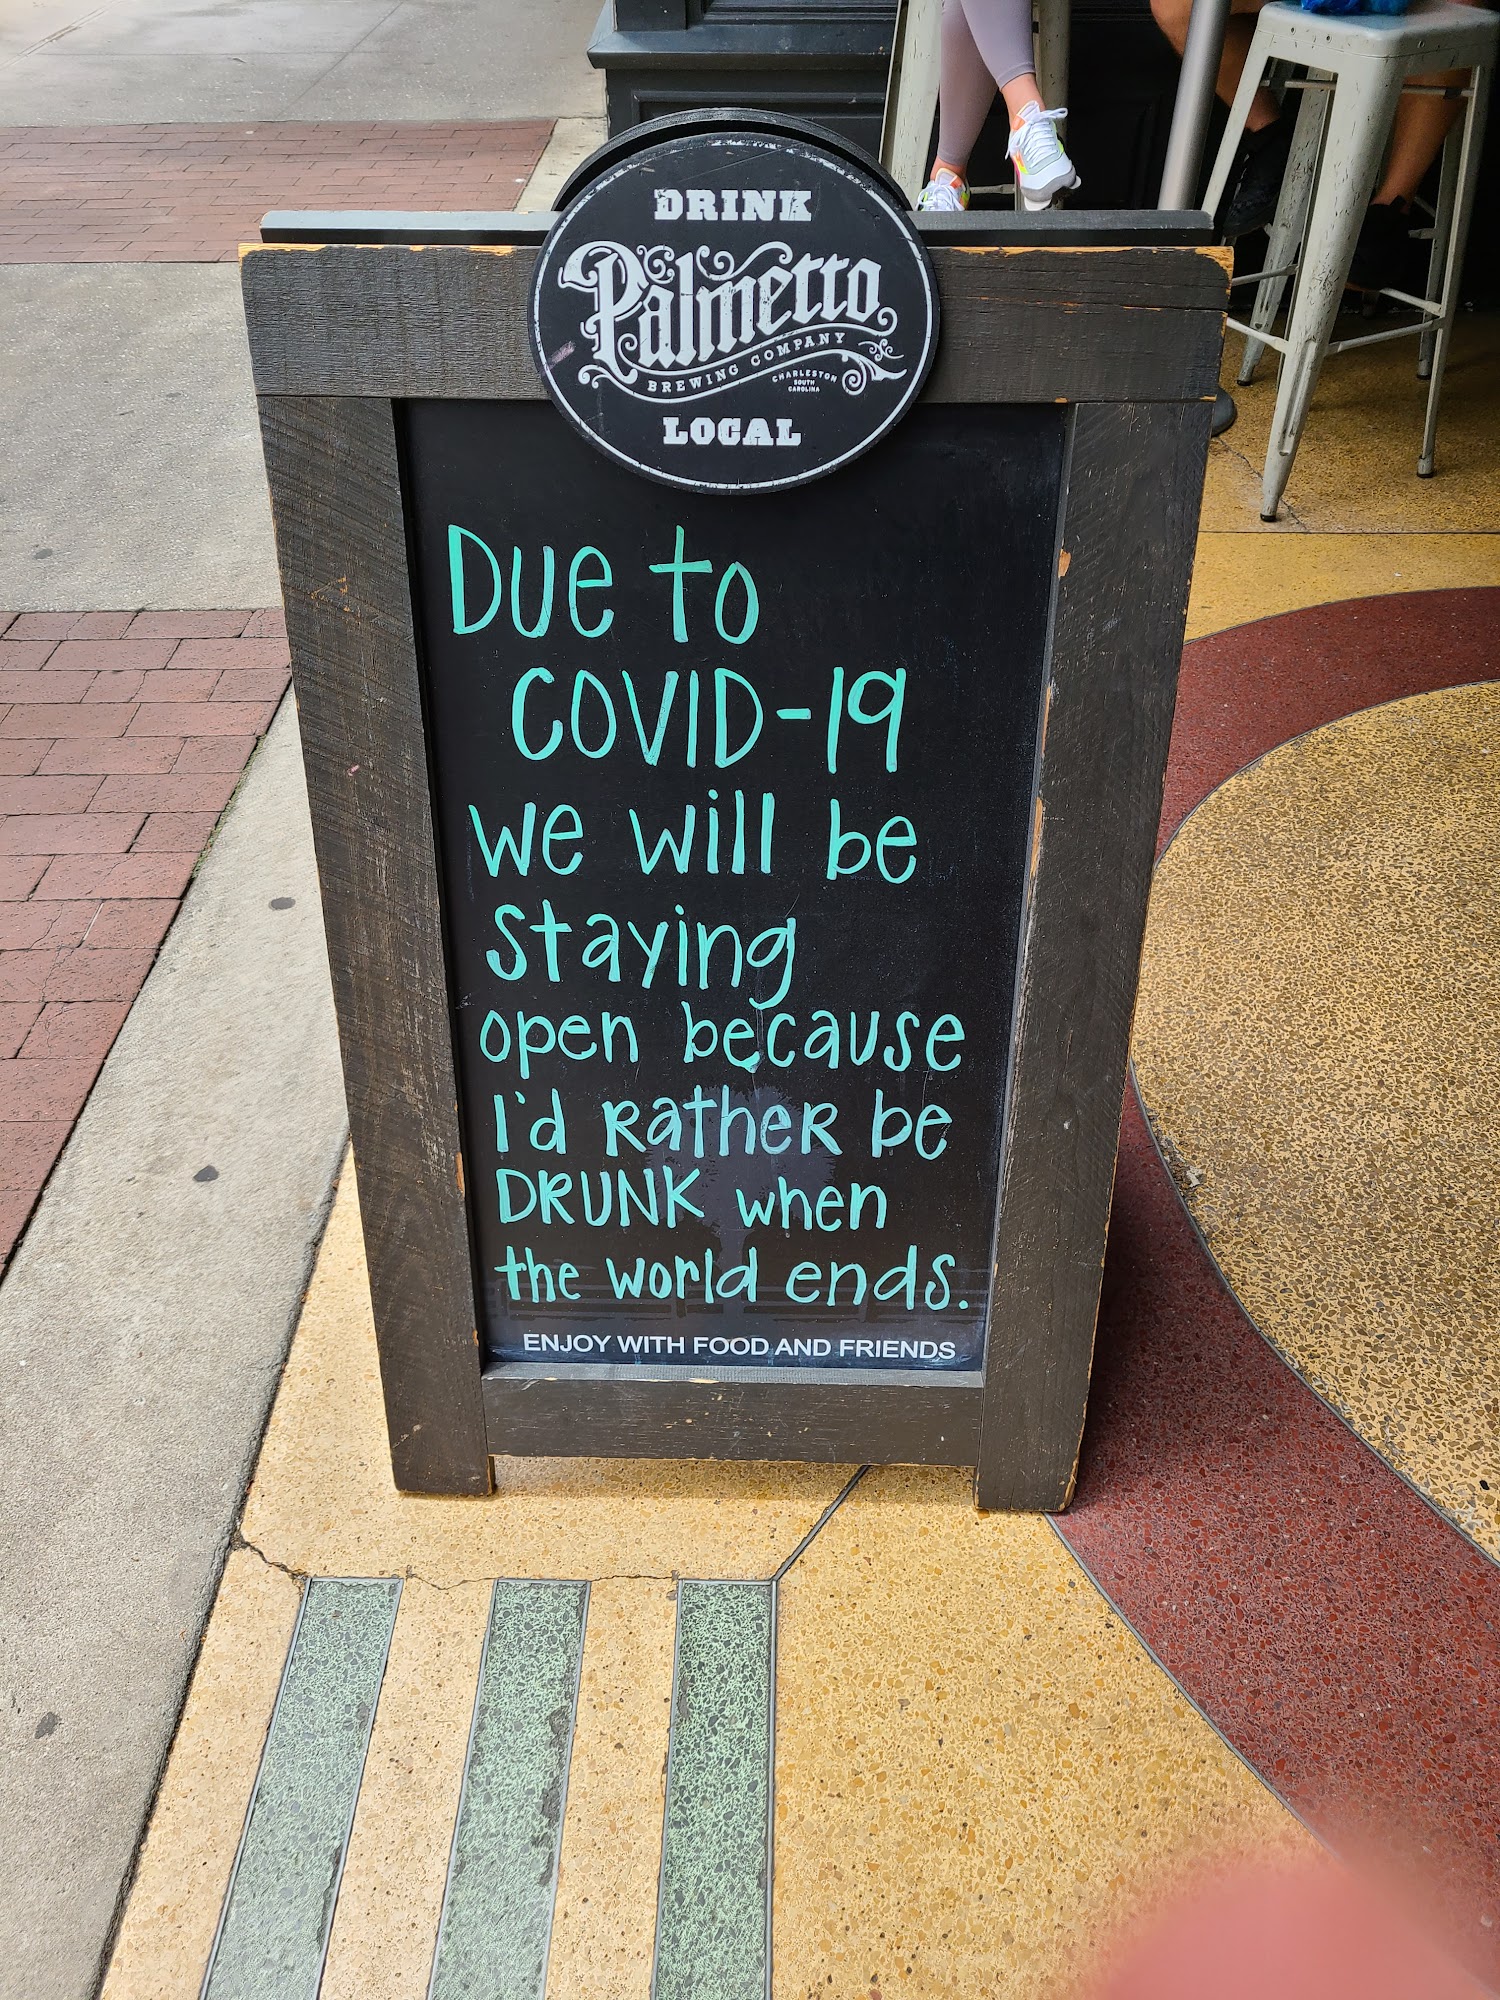 DRINK
Palmetto
BREWING COMPANY
CHARLESTON
SOUTH
CAROLINA
LOCAL
Due to
COVID-19
we will be
staying
open because
I'd Rather be
DRUNK when
the world ends.
ENJOY WITH FOOD AND FRIENDS